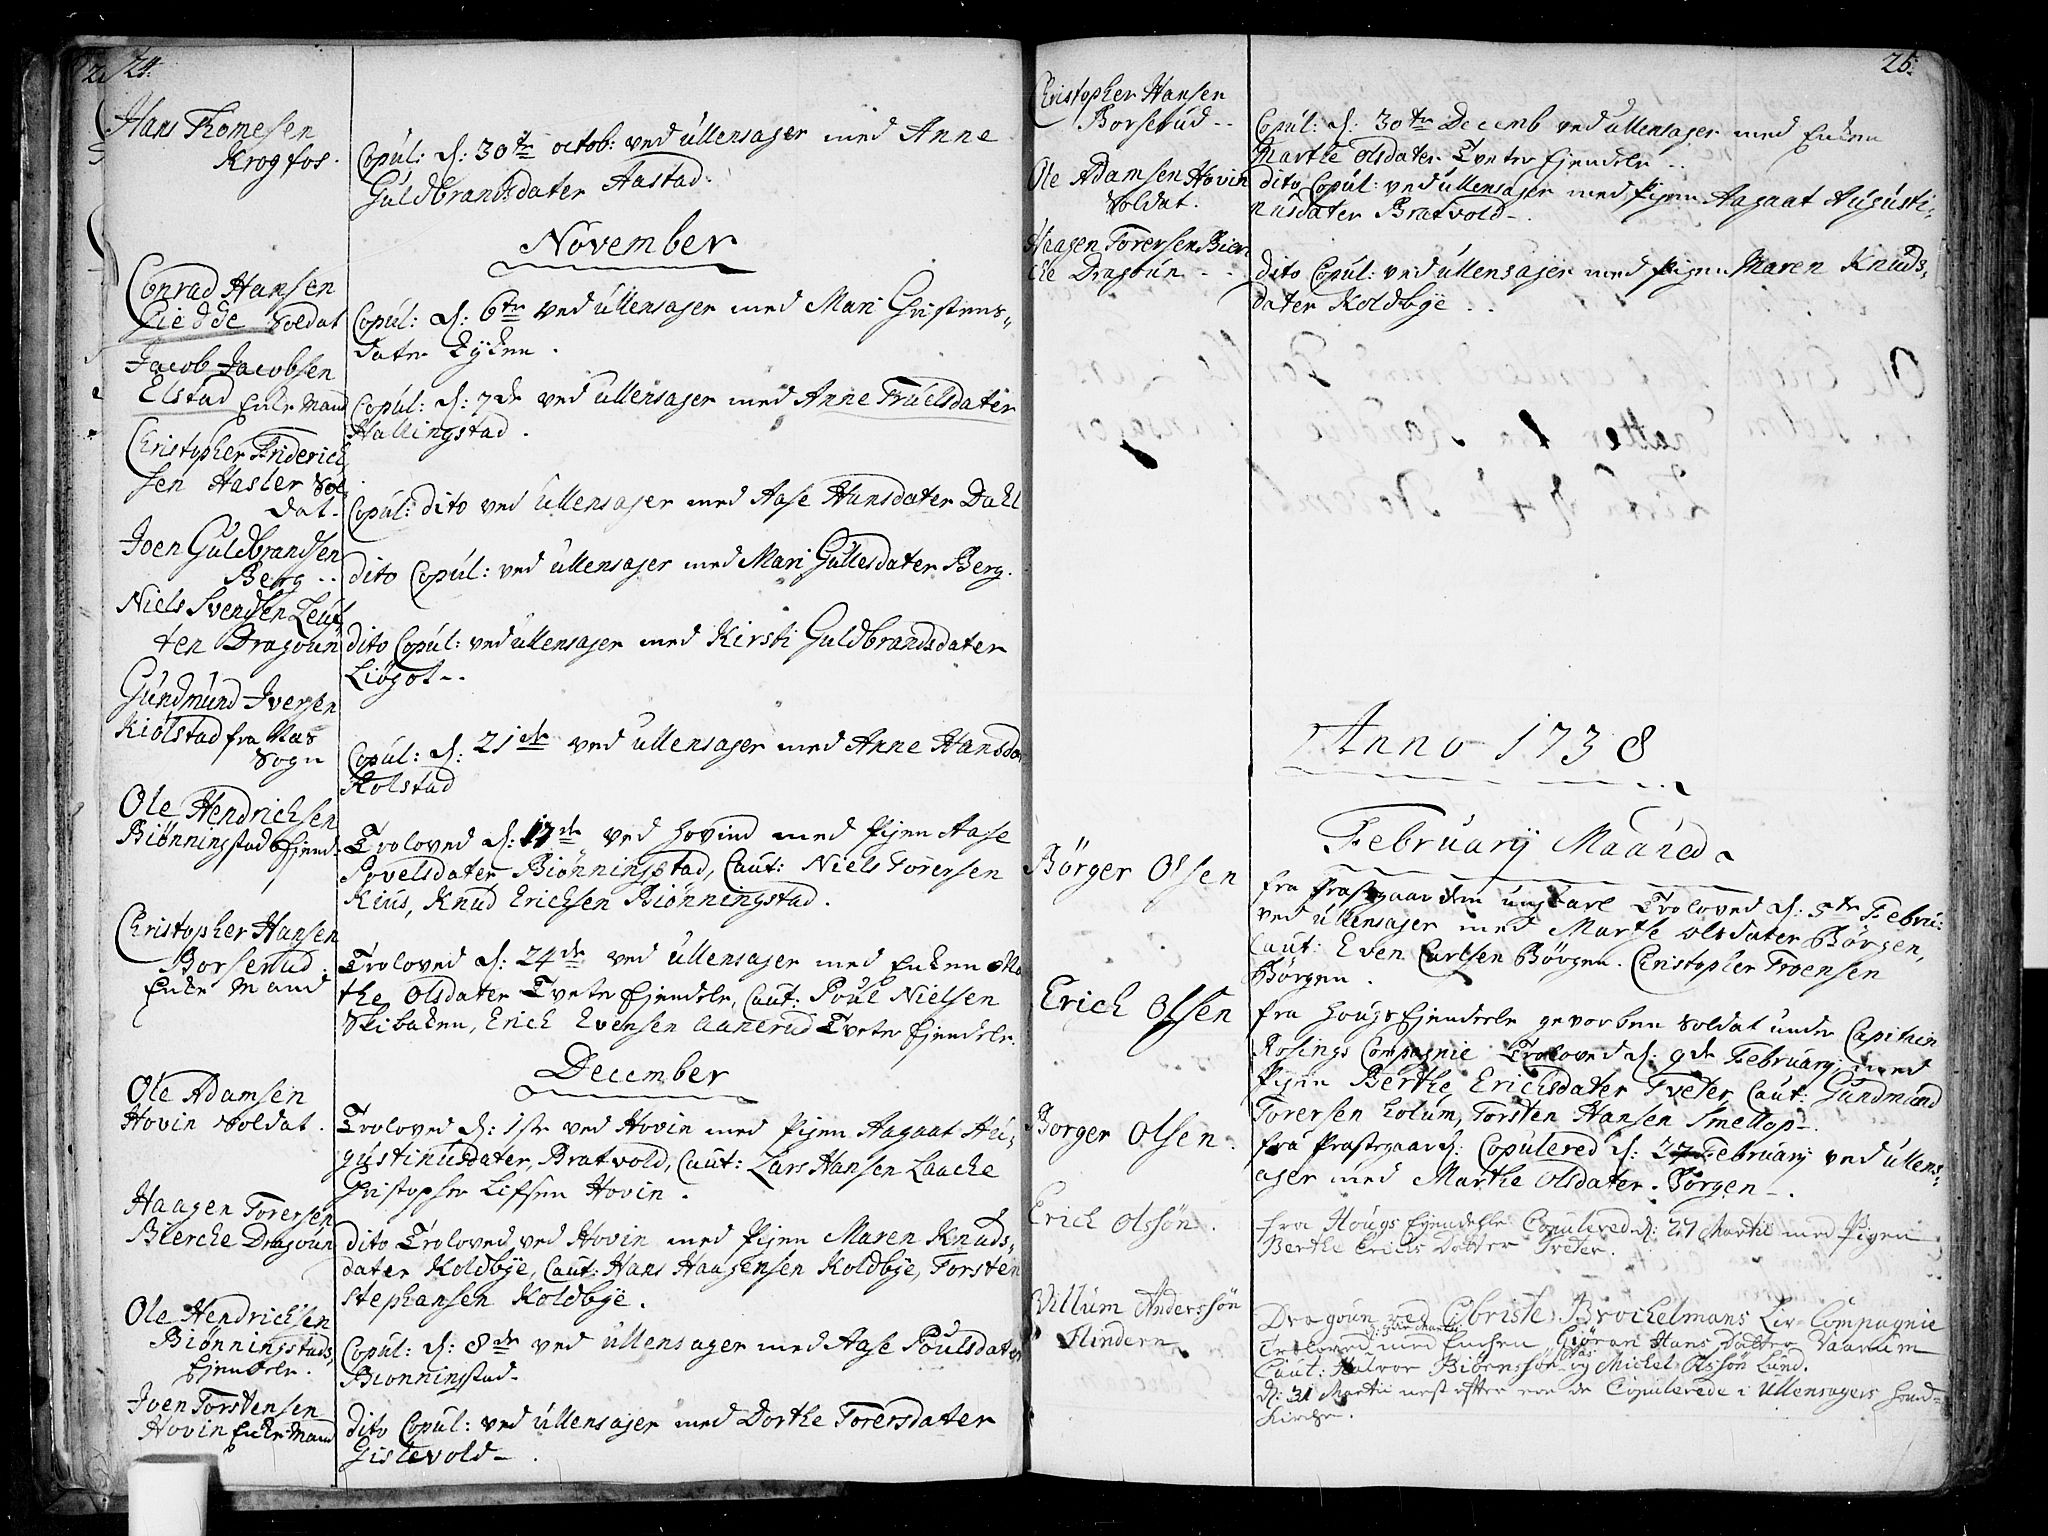 24.
Hans Thomesen
Krogfos.
Copúl: d: 30te octob: ved úllensager med Anne
Gúldbrandsdater Aastad.
November
Conrad Hansen
Giedde Soldat
Copúl: d: 6te ved úllensager med Mari Christens,,
dater
Jacob Jacobsen
Elstad Enke Mand
Copúl: d: 7de ved úllensager med Anne Trúelsdater
Hallingstad.
Christopher Friderich
sen Hasler Sol
dat.
Copúl: dito ved úllensager med Aase Hansdater Dahl
Joen Gúldbrandsen
Berg ..
dito Copúl: ved úllensager med Mari Gúllesdater Berg.
Niels Svendsen Leút
ten Dragoún
dito Copúl: ved úllensager med Kirsti Gúldbrandsdater
Liøgot..
Gúndmúnd Iversen
Kiølstad fra Næs
Sogn
Copúl: d: 21de ved úllensager med Anne Hansda
Kolstad
Ole Hendrichsen
Biønningstad Ejend.
Troloved d: 17de ved Hovind med Pigen Aase
Povelsdater Biønningstad, Caut: Niels Torersen
Kiús, Knúd Erichsen Biønningstad.
Christopher Hansen
Borserúd.
Enke Mand
Troloved d: 24de ved úllensager med Enken Ma
the Olsdater Tveter Ejendele, Caut: Poúl Nielsen
Skibaken, Erich Evensen Aanerúd Tveter Ejendele.
December
Ole Adamsen
Hovin Soldat.
Troloved d: 1ste ved Hovin med Pigen Aagaat Aú,
gústinúsdater, Bratvold, Caut: Lars Hansen Laache
Christopher Lifsen Hovin.
Haagen Torersen
Bierche Dragoún
dito Troloved ved Hovin med Pigen Maren Knúds,
dater Koldbye, Caut: Hans Haagensen Koldbye, Torsten
Stephansen Koldbye.
Ole Hendrichsen
Biønningstads
Ejendele.
Copúl: d: 8de ved úllensager med Aase Poúlsdater
Biønningstad.
Joen Torstensen
Hovin Enke Mand
dito Copúl: ved úllensager med Dorthe Torersdater
Gislevold.
25.
Christopher Hansen
Borserúd..
Copúl: d: 30te Decemb ved úllensager med Enken
Marthe Olsdater Tveter Ejendele..
Ole Adamsen Hovin
Soldat.
dito Copúl: ved úllensager med Pigen Aagaat Aúgústi,
núsdater Bratvold.
Haagen Torersen Bier
che Dragoún..
dito Copúl: ved úllensager med Pigen Maren Knúds,
dater Koldbye..
Anno 1738
Februarij Maaned
Børger Olsen
fra Præstegaarden ungkarl Troloved d: 5te Febrú:
ved úllensager med Marthe Olsdater Børgen,
Caut: Even Carlsen Børgen. Christopher Troensen
Børgen.
Erich Olsen
fra Hougs Ejendeele gevorben Soldat únder Capitein
Rosings Compagnie Troloved d: 9de Februarij med
Pigen Berthe Erichsdater Tveter, Caut: Gúndmúnd
Torersen Holúm, Torsten Hansen Smellop.
Borger Olsen.
fra Præstegaard: Copulered d: 27 Februarij ved úllens,
ager med Marthe Olsdater Børgen.
Erich Olssøn.
fra Hougs Ejendehle Copulered d: 27 Martii med Pigen
Berthe Erichs Datter Treter.
Villum Anderssøn
Flindern
Dragoun ved Obriste Brochelmans Liv-Compagnie
Troloved med Enchen Giøran Hans Datter Vaarum
Caut: Halvor Biørnssøn og Michel Olssøn Lund.
d: 31 Martii nest efter ere de Copulerede i Ullensagers Hovid-
Kirche.